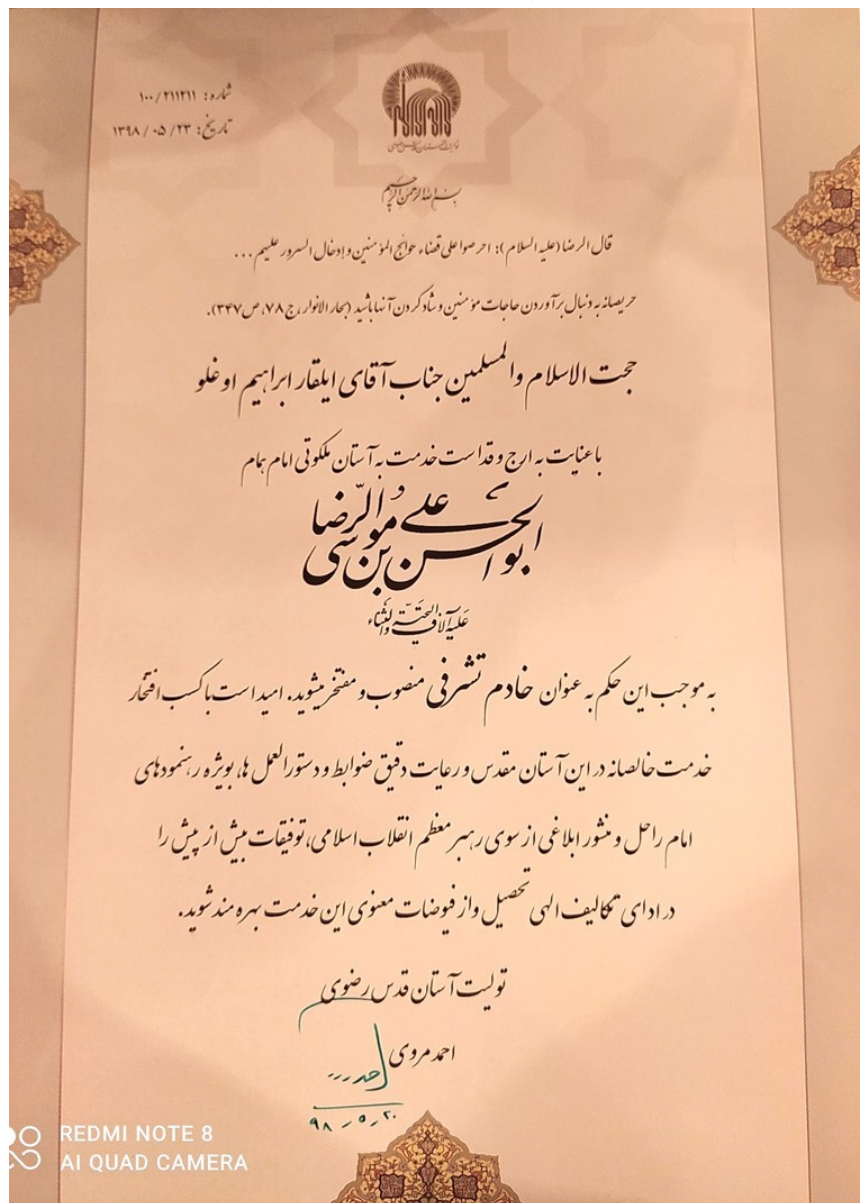 شماره: ۱۰۰/۲۱۱۲۱۱
تاریخ: ۱۳۹۸/۰۵/۲۳
بسم الله الرحمن الرحیم
قال الرضا (علیه السلام): احرصوا علی قضاء حوائج المؤمنین و إدخال السرور علیهم ...
حریصانه به دنبال برآوردن حاجات مؤمنین و شاد کردن آنها باشید (بحار الانوار، ج ۷۸، ص ۳۴۷).
حجت الاسلام والمسلمین جناب آقای ایلقار ابراهیم اوغلو
با عنایت به ارج و قداست خدمت به آستان ملکوتی امام همام
ابوالحسن علی بن موسی الرضا
علیه آلاف التحیة والثناء
به موجب این حکم به عنوان خادم تشرفی منصوب و مفتخر میشوید. امید است با کسب افتخار
خدمت خالصانه در این آستان مقدس و رعایت دقیق ضوابط و دستورالعمل ها، بویژه رهنمودهای
امام راحل و منشور ابلاغی از سوی رهبر معظم انقلاب اسلامی، توفیقات بیش از پیش را
در ادای تکالیف الهی تحصیل و از فیوضات معنوی این خدمت بهره مند شوید.
تولیت آستان قدس رضوی
احمد مروی
۹۸-۵-۲۰
REDMI NOTE 8
AI QUAD CAMERA